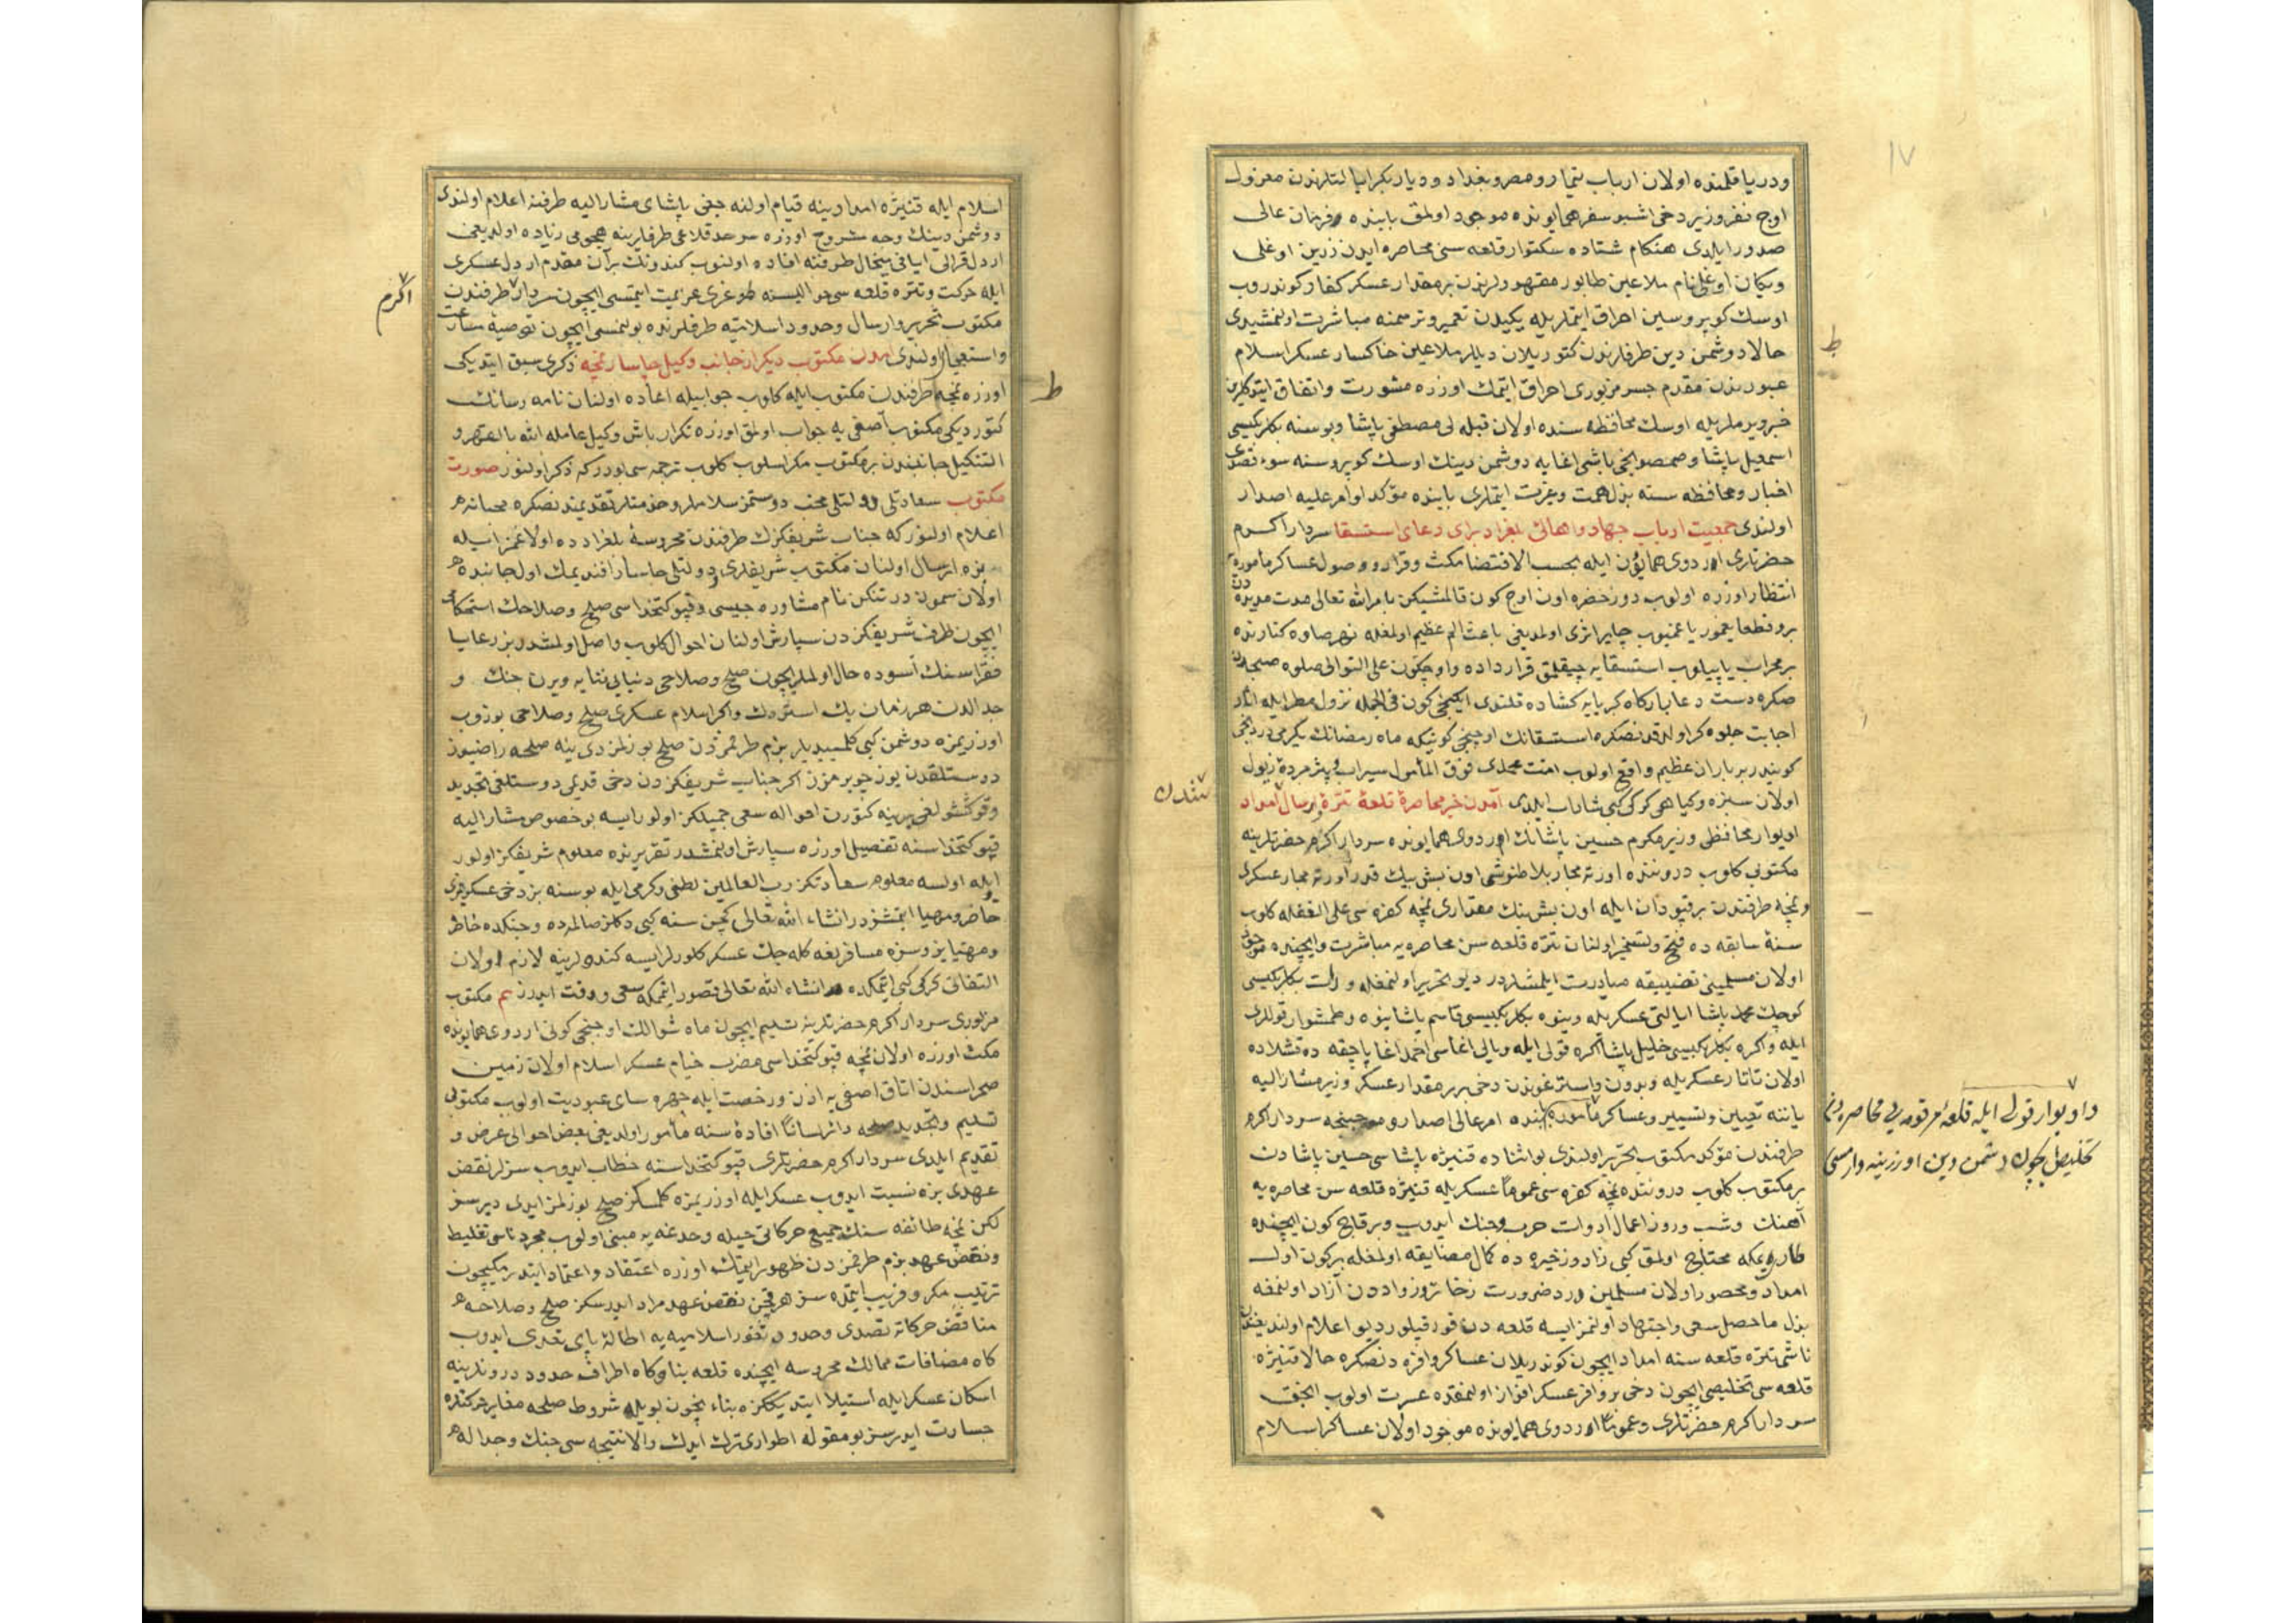 ١٧
ودريا قلمنده اولان ارباب تيمار ومصر وبغداد و ديار بكر ايالتلرندن معزول
اوچ نفر وزير دخى اشبو سفر همايونده موجود اولمق بابنده فرمان عالى
صدور ايلدى هنكام شتاده سكتوار قلعه سنى محاصره ايدن زرين اوغلى
وبكان اوغلى نام ملاعين طابور مقهورلرندن بر مقدار عسكر كفار كوندروب
اوسك كوپروسين احراق ايتملريله يكيدن تعمير و ترميمنه مباشرت اولنمشيدى
حالا دوشمن دين طرفلرندن كتوريلان ديللر ملاعين خاكسار عسكر اسلام
عبورندن مقدم جسر مزبورى احراق ايتمك اوزره مشورت واتفاق ايتدكلرين
خبر ويرملريله اوسك محافظه سنده اولان قبله لى مصطفى پاشا وبوسنه بكلربكيسى
اسمعيل پاشا وصمصونجى باشى اغايه دوشمن دينك اوسك كوپروسنه سوء قصدى
اخبار ومحافظه سنه بذل همت وغيرت ايتملرى بابنده مؤكد اوامر عليه اصدار
اولندى جمعيت ارباب جهاد واهالئ بلغراد براى دعاى استسقا سردار اكرم
حضرتلرى اردوى همايون ايله بحسب الاقتضا مكث وقرار ووصول عساكر مأموره يه
انتظار اوزره اولوب دور خضره اون اوچ كون قالمشيكن بامر الله تعالى مدت مديده دن
برو قطعا يغمور ياغميوب چاير اثرى اولمديغى باعث الم عظيم اولمغله نهر صاوه كنارنده
بر محراب ياپيلوب استسقايه چيقلمق قرار داده واوچ كون على التوالى صلوه صبحدن
صكره دست دعا باركاه كبريايه كشاده قلندى ايكنجى كون فى الجمله نزول مطر ايله اثار
اجابت جلوه كر اولدقدنصكره استسقانك اوچنجى كونيكه ماه رمضانك يكرمى دردنجى
كونيدر بر باران عظيم واقع اولوب امت محمدى فوق المأمول سيراب و پژمرده ذبول
اولان سبزه وكياهى كركى كبى شاداب ايلدى آمدن خبر محاصرهٔ قلعهٔ نتره وارسال امداد
تندن
اويوار محافظى وزير مكرم حسين پاشانك اردوى همايونده سردار اكرم حضرتلرينه
مكتوبى كلوب دروننده اورته مجار بلاطنوشى اون بش بيك قدر اورته مجار عسكرى
ونمچه طرفندن بر قپودان ايله اون بش بيك مقدارى نمچه كفره سى على الغفله كلوب
سنهٔ سابقه ده فتح وتسخير اولنان نتره قلعه سن محاصره يه مباشرت وايچنده موجود
اولان مسلمينى تضييقه مبادرت ايلمشلردر ديو تحرير اولنمغله وارات بكلربكيسى
كوچك محمد پاشا ايالتى عسكريله وينوه بكلربكيسى قاسم پاشا ينوه وطمشوار قوللرى
ايله واكره بكلربكيسى خليل پاشا اكره قولى ايله ويالى اغاسى احمد اغا پاچقه ده قشلاده
اولان تاتار عسكريله وبدون واسترغوندن دخى برر مقدار عسكر وزير مشار اليه
ياننه تعيين وتسيير وعساكر مأموره بابنده امر عالى اصدار و موجبنجه سردار اكرم
طرفندن مؤكد مكتوب تحرير اولندى بو اثناده قنيژه پاشاسى حسين پاشادن
بر مكتوب كلوب دروننده نمچه كفره سى عموماً عسكريله قنيژه قلعه سن محاصره يه
آهنك وشب وروز اعمال ادوات حرب وجنك ايدوب وبر قاچ كون ايچنده
طارويه محتاج اولمق كبى زاد وزخيره ده كمال مضايقه اولمغله بركون اول
امداد ومحصور اولان مسلمين درد ضرورت زخائر وزواددن آزاد اولنمغه
بذل ماحصل سعى واجتهاد اولنمز ايسه قلعه دن قورقيلور ديو اعلام اولنديغندن
ناشى نتره قلعه سنه امداد ايچون كوندريلان عساكر وافره دنصكره حالا قنيژه
قلعه سى تخليصى ايچون دخى بر وافر عسكر افراز اولنمقده عسرت اولوب انجق
سردار اكرم حضرتلرى وعموماً اردوى همايونده موجود اولان عساكر اسلام
ط
واويوار قولى ايله قلعهٔ مرقومه يى محاصره دن
تخليص ايچون دشمن دين اوزرينه وارمسى
اسلام ايله قنيژه امدادينه قيام اولنه جغى پاشاى مشار اليه طرفنه اعلام اولندى
دوشمن دينك وجه مشروح اوزره سرحد قلاعى طرفلرينه هجومى زياده اولديغى
اردل قرالى اپافى ميخال طرفنه افاده اولنوب كندونك بر آن مقدم اردل عسكرى
ايله حركت ونتره قلعه سى حواليسنه طوغرى عزيمت ايتمسى ايچون سردار طرفندن
اكرم
مكتوب تحرير وارسال وحدود اسلاميه طرفلرنده بولنمسى ايچون توصيهٔ مسارعت
واستعجال اولندى آمدن مكتوب ديكر از جانب وكيل چاسار نمچه ذكرى سبق ايتديكى
ط
اوزره نمچه طرفندن مكتوب ايله كلوب جوابيله اعاده اولنان نامه رسانك
كتورديكى مكتوب آصفى يه جواب اولمق اوزره تكرار باش وكيل عامله الله بالقهر و
التنكيل جانبندن بر مكتوب مكر اسلوب كلوب ترجمه سى بودر كه ذكر اولنور صورت
مكتوب سعادتلو ودولتلى محب دوستمز سلاملر وخدمتلر تقديمندنصكره محبانه
اعلام اولنور كه جناب شريفكزك طرفندن محروسهٔ بلغرادده اولاغمز ايله
بزه ارسال اولنان مكتوب شريفلرى ودولتلى چاسار افنديمك اول جانبده
اولان سمون در تنكن نام مشاوره جيسى وقپوكتخداسى صلح وصلاحك استحكامى
ايچون طرف شريفكزدن سپارش اولنان احوال كلوب واصل اولمشدر بز رعايا
فقراسنك آسوده حال اولملرى ايچون صلح وصلاحى دنيايى فنايه ويرن جنك و
جدالدن هر زمان يك استردك واكر اسلام عسكرى صلح وصلاحى بوزوب
اوزريمزه دوشمن كبى كلمسيديلر بزم طرفمزدن صلح بوزلمزدى ينه صلحه راضيوز
دوستلقدن يوز چويرمزز اكر جناب شريفكزدن دخى قديمى دوستلغى تجديد
وقوكشولغى يرينه كتورن احواله سعى جميلكز اولورايسه بو خصوص مشار اليه
قپوكتخداسنه تفصيل اوزره سپارش اولنمشدر تقريرنده معلوم شريفكز اولور
ايله اولسه معلوم سعادتكز رب العالمين لطفى وكرمى ايله بو سنه بز دخى عسكريمزى
حاضر ومهيا ايتمشزدر انشاء الله تعالى كچن سنه كبى دكلز صالمده وجنكده خاطر
ومهيايز وسزه مسافرلغه كله جك عسكر كلورلرايسه كندولرينه لازم اولان
التفاتى كركى كبى ايتمكده انشاء الله تعالى قصور ايتمكه سعى ودقت ايدرز تم مكتوب
مزبورى سردار اكرم حضرتلرينه تسليم ايچون ماه شوالك اوچنجى كونى اردوى همايونده
مكث اوزره اولان نمچه قپوكتخداسى مضرب خيام عسكر اسلام اولان زمين
صحراسندن اتاق اصفى يه اذن ورخصت ايله چهره ساى عبوديت اولوب مكتوبى
تسليم وتجديد صلحه دائر لساناً افاده سنه مأمور اولديغى بعض احوالى عرض و
تقديم ايلدى سردار اكرم حضرتلرى قپوكتخداسنه خطاب ايدوب سزلر نقض
عهدى بزه نسبت ايدوب عسكر ايله اوزريمزه كلمسكز صلح بوزلمز ايدى ديرسز
لكن نمچه طائفه سنك جميع حركاتى حيله وخدعه يه مبنى اولوب مجرد ناسى تغليط
ونقض عهد بزم طرفمزدن ظهور ايتمك اوزره اعتقاد واعتماد ايتدرمك ايچون
ترتيب مكر وفريب ايتمده سز هر قچن نقض عهد مراد ايدرسكز صلح وصلاحه
مناقض حركاته تصدى وحدود ثغور اسلاميه يه اطالهٔ پاى تعدى ايدوب
كاه مضافات ممالك محروسه ايچنده قلعه بنا وكاه اطراف حدود درونلرينه
اسكان عسكر ايله استيلا ايتديككزه بناء نيچون بويله شروط صلحه مغاير حركتلره
جسارت ايدرسز بو مقوله اطوارى ترك ايدك والا نتيجه سى جنك وجداله